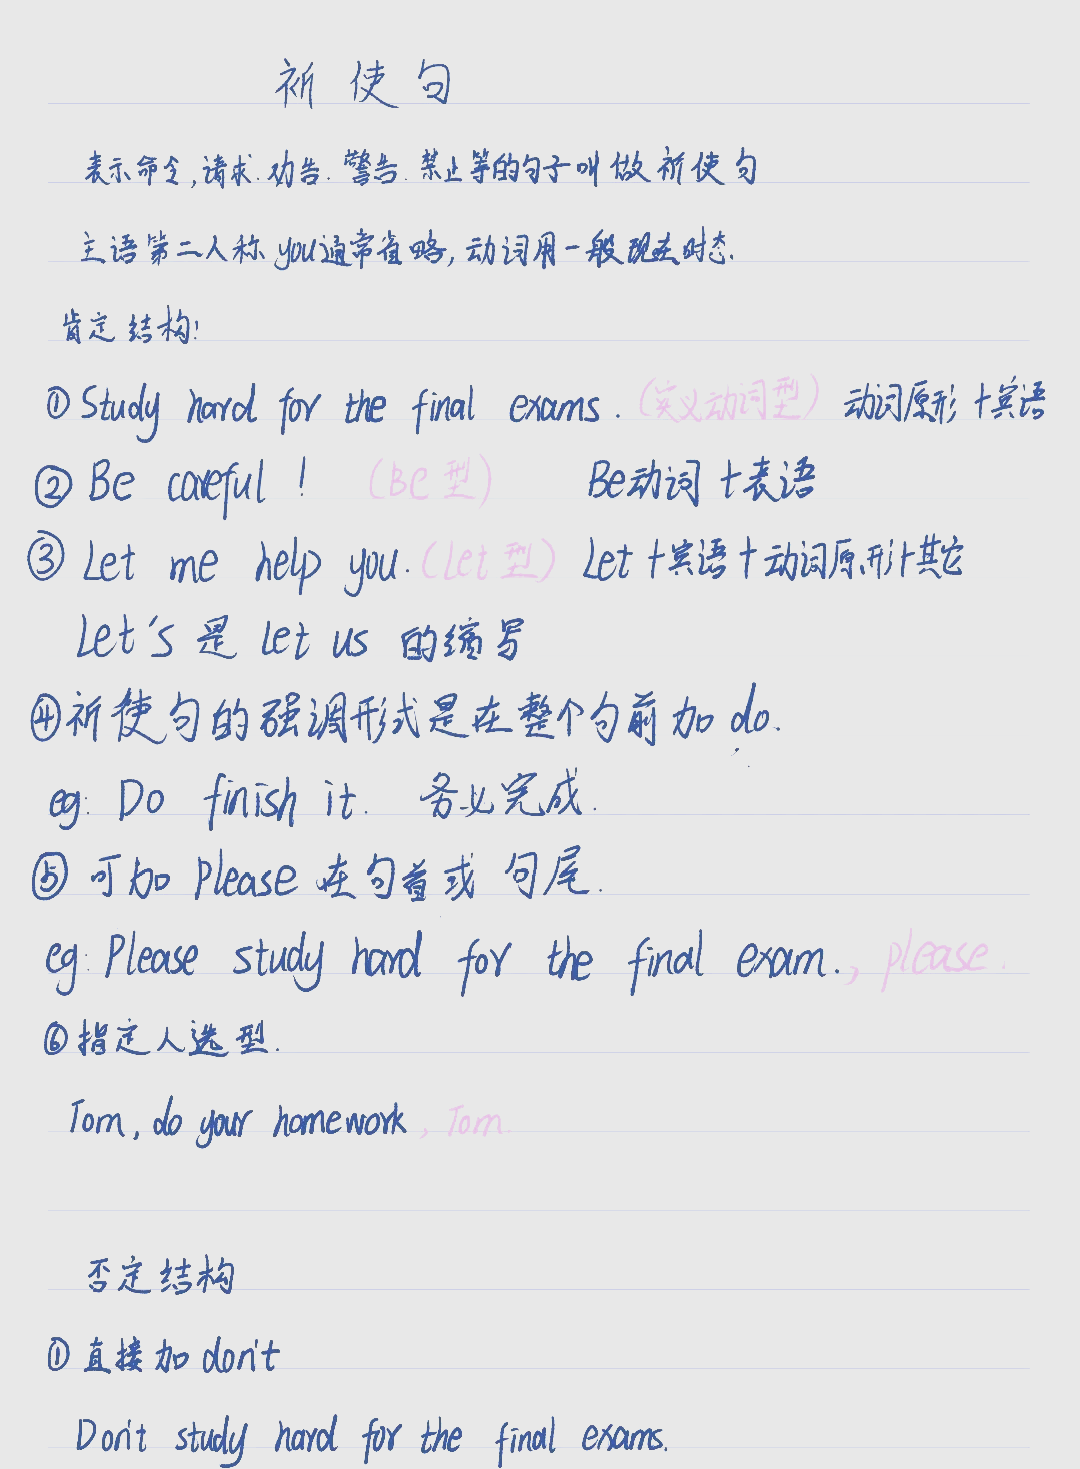 祈使句
表示命令,请求.劝告.警告.禁止等的句子叫做祈使句
主语第二人称you通常省略,动词用一般现在时态.
肯定结构:
① Study hard for the final exams. (实义动词型) 动词原形+宾语
② Be careful! (Be型) Be动词+表语
③ Let me help you. (Let型) Let+宾语+动词原形+其它
Let's是let us的缩写
④祈使句的强调形式是在整个句前加do.
eg: Do finish it. 务必完成.
⑤可加Please在句首或句尾.
eg: Please study hard for the final exam., please.
⑥指定人选型.
Tom, do your homework, Tom.
否定结构
①直接加don't
Don't study hard for the final exams.